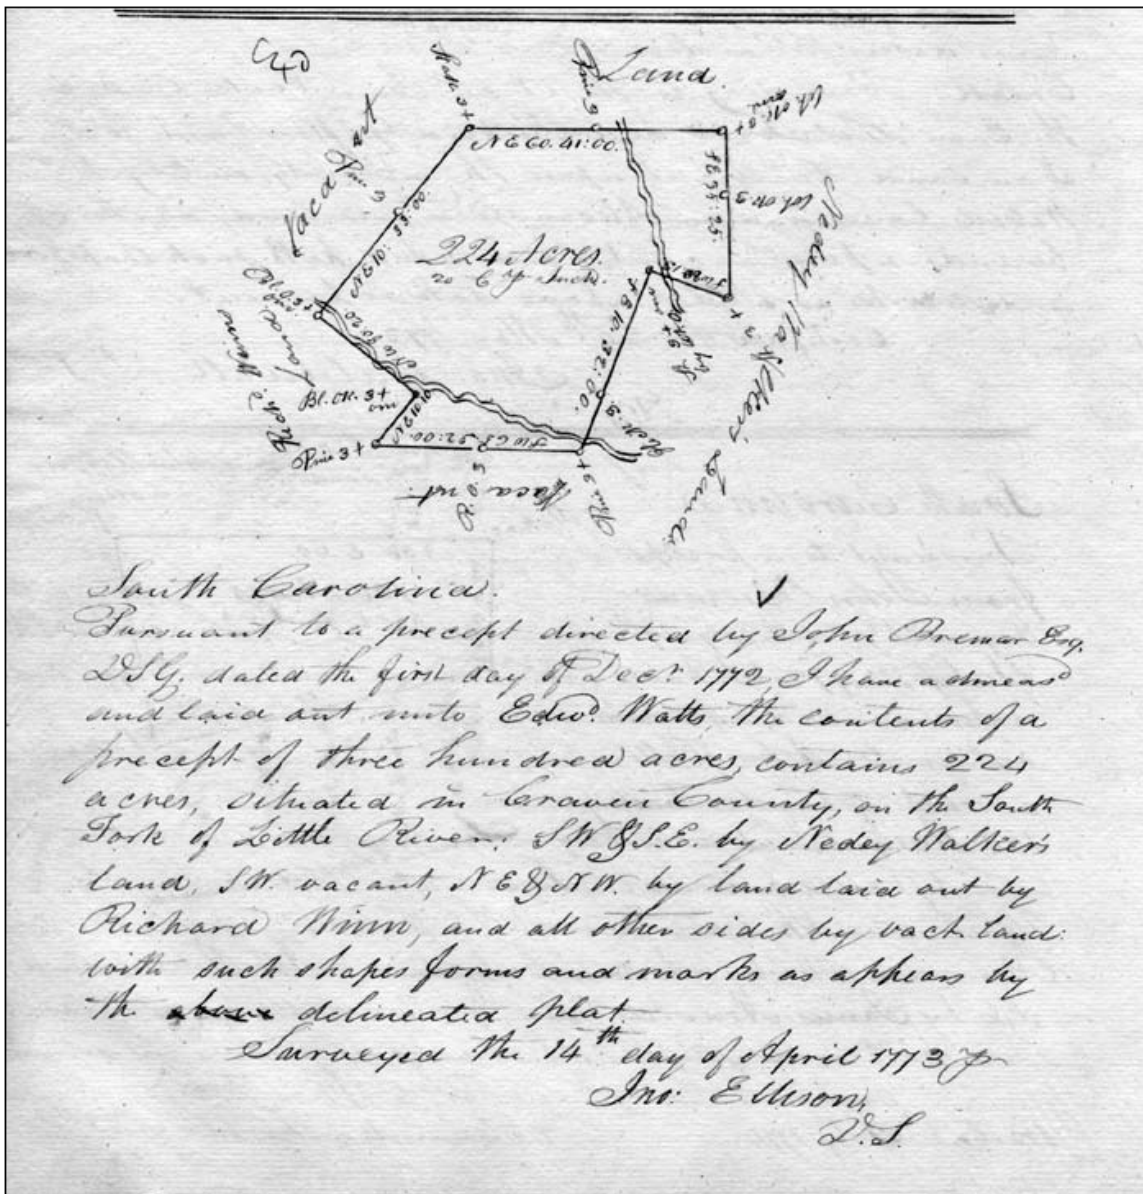 Land
Stake 3+
Pine 3
N E 60. 41:00.
Vacant
Pine 3
N E 10: 33:00.
224 Acres.
20 C pr Inch.
Richd. Winns
Land
Bl. OK. 3+
Pine 3+
Vacant
Pine 3+
Nedey Walker's Land
South Carolina.
Pursuant to a precept directed by John Bremar Esq.
D S G. dated the first day of Decr. 1772, I have admeasd
and laid out unto Edwd. Watts the contents of a
precept of three hundred acres, contains 224
acres, situated in Craven County, on the South
Fork of Little River, S W & S. E. by Nedey Walker's
land, S W. vacant, N E & N W. by land laid out by
Richard Winn, and all other sides by vact. land:
with such shapes forms and marks as appears by
the above delineated plat.
Surveyed the 14th day of April 1773 pr
Jno: Ellison,
D. S.